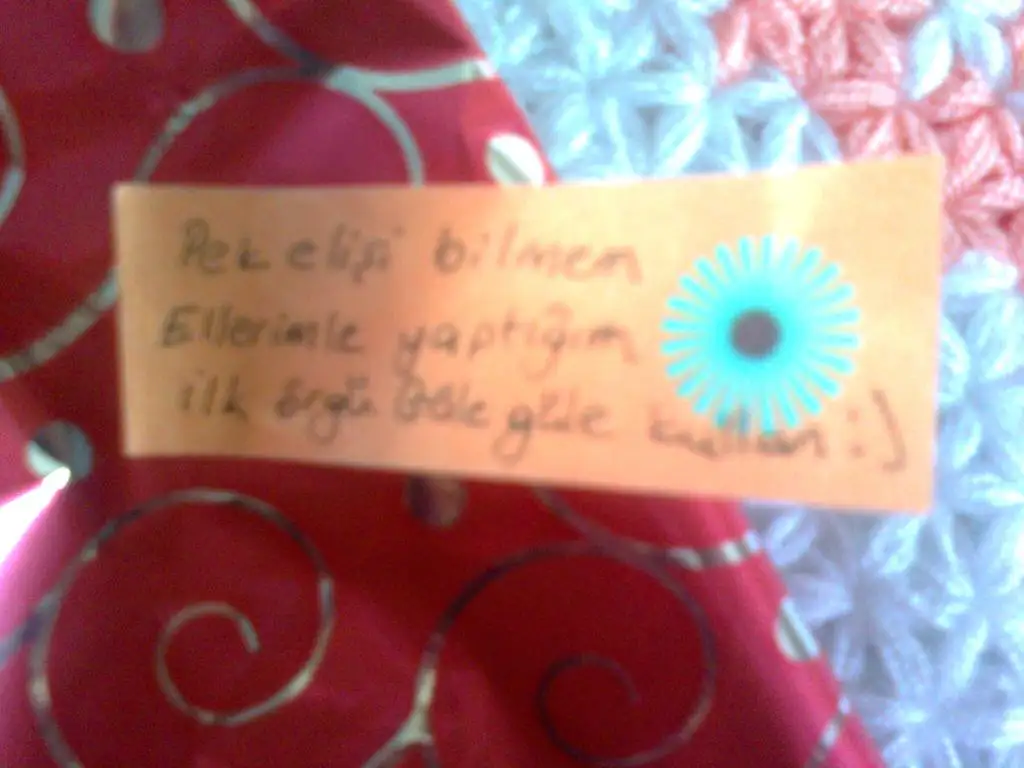 Pek elişi bilmem
Ellerimle yaptığım
ilk örgü Güle güle kullan :)